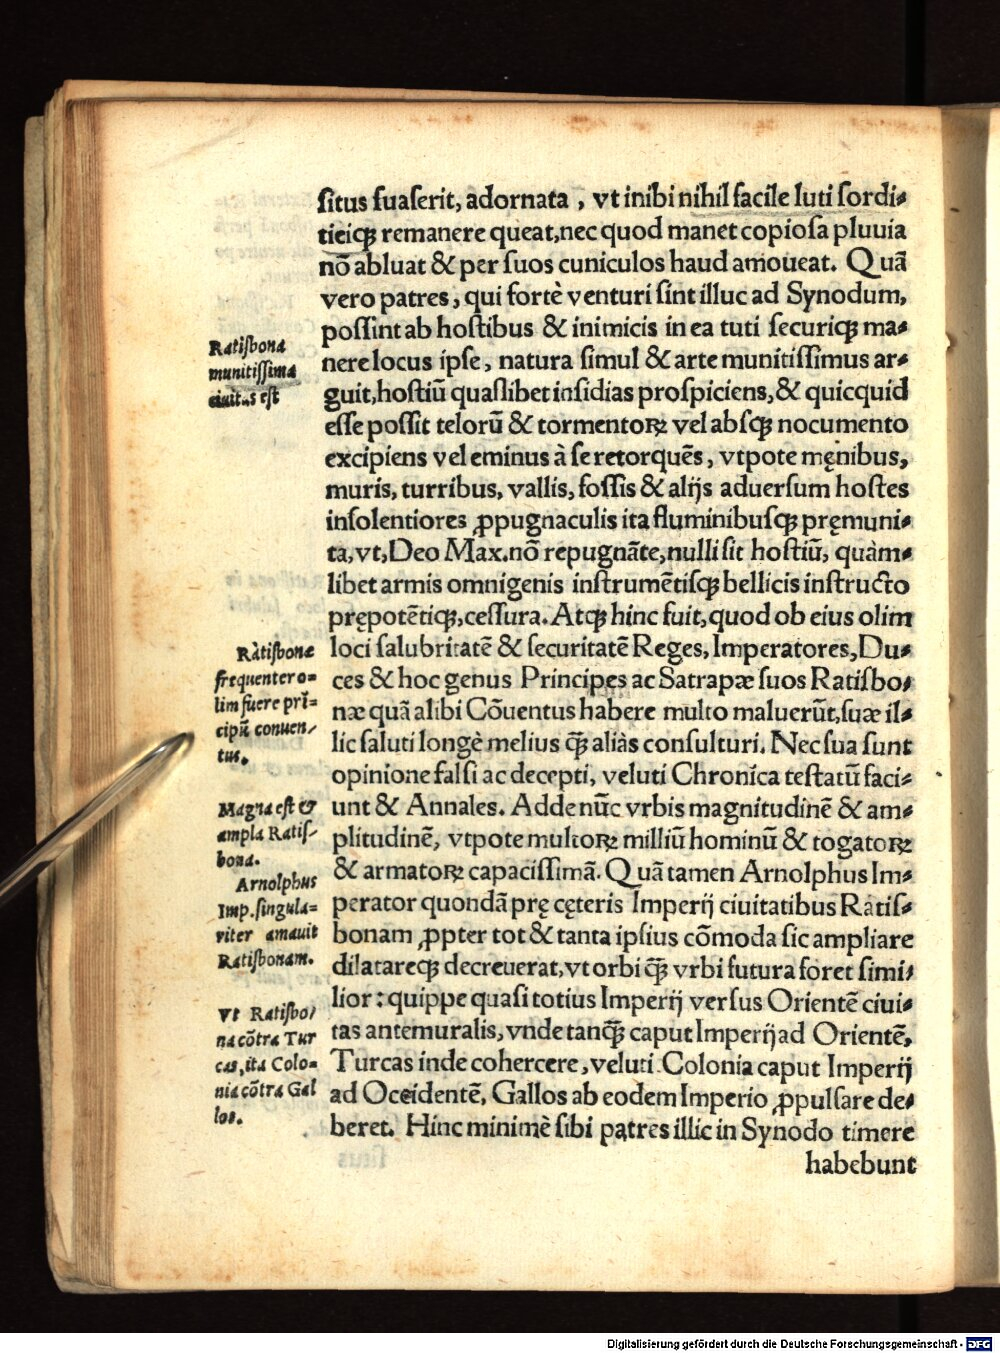 ſitus ſuaſerit, adornata, vt inibi nihil facile luti ſordi-
tieiq́; remanere queat, nec quod manet copioſa pluuia
nõ abluat & per ſuos cuniculos haud amoueat. Quã
vero patres, qui fortè venturi ſint illuc ad Synodum,
poſſint ab hoſtibus & inimicis in ea tuti ſecuriq́; ma-
nere locus ipſe, natura ſimul & arte munitiſſimus ar-
guit, hoſtiũ quaſlibet inſidias proſpiciens, & quicquid
eſſe poſſit telorũ & tormentoꝝ vel abſq́; nocumento
excipiens vel eminus à ſe retorquẽs, vtpote męnibus,
muris, turribus, vallis, foſſis & alijs aduerſum hoſtes
inſolentiores ꝓpugnaculis ita fluminibuſq́; pręmuni-
ta, vt, Deo Max. nõ repugnãte, nulli ſit hoſtiũ, quàm-
libet armis omnigenis inſtrumẽtiſq́; bellicis inſtructo
prępotẽtiq́;, ceſſura. Atq́; hinc fuit, quod ob eius olim
loci ſalubritatẽ & ſecuritatẽ Reges, Imperatores, Du-
ces & hoc genus Principes ac Satrapæ ſuos Ratiſbo-
næ quã alibi Cõuentus habere multo maluerũt, ſuæ il-
lic ſaluti longè melius q̃ȝ aliàs conſulturi. Nec ſua ſunt
opinione falſi ac decepti, veluti Chronica teſtatũ faci-
unt & Annales. Adde nũc vrbis magnitudinẽ & am-
plitudinẽ, vtpote multoꝝ milliũ hominũ & togatoꝝ
& armatoꝝ capaciſſimã. Quã tamen Arnolphus Im-
perator quondã prę cęteris Imperij ciuitatibus Ratiſ-
bonam ꝓpter tot & tanta ipſius cõmoda ſic ampliare
dilatareq́; decreuerat, vt orbi q̃ȝ vrbi futura foret ſimi-
lior: quippe quaſi totius Imperij verſus Orientẽ ciui-
tas antemuralis, vnde tanq̃ȝ caput Imperij ad Orientẽ,
Turcas inde cohercere, veluti Colonia caput Imperij
ad Occidentẽ, Gallos ab eodem Imperio ꝓpulſare de-
beret. Hinc minimè ſibi patres illic in Synodo timere
habebunt
Ratiſbona
munitiſſima
ciuitas eſt
Ratiſbonæ
frequenter o-
lim fuere pri-
cipũ conuen-
tus.
Magna eſt &
ampla Ratiſ-
bona.
Arnolphus
Imp. ſingula-
riter amauit
Ratiſbonam.
Vt Ratiſbo-
na cõtra Tur
cas, ita Colo-
nia cõtra Gal
los.
Digitalisierung gefördert durch die Deutsche Forschungsgemeinschaft - DFG